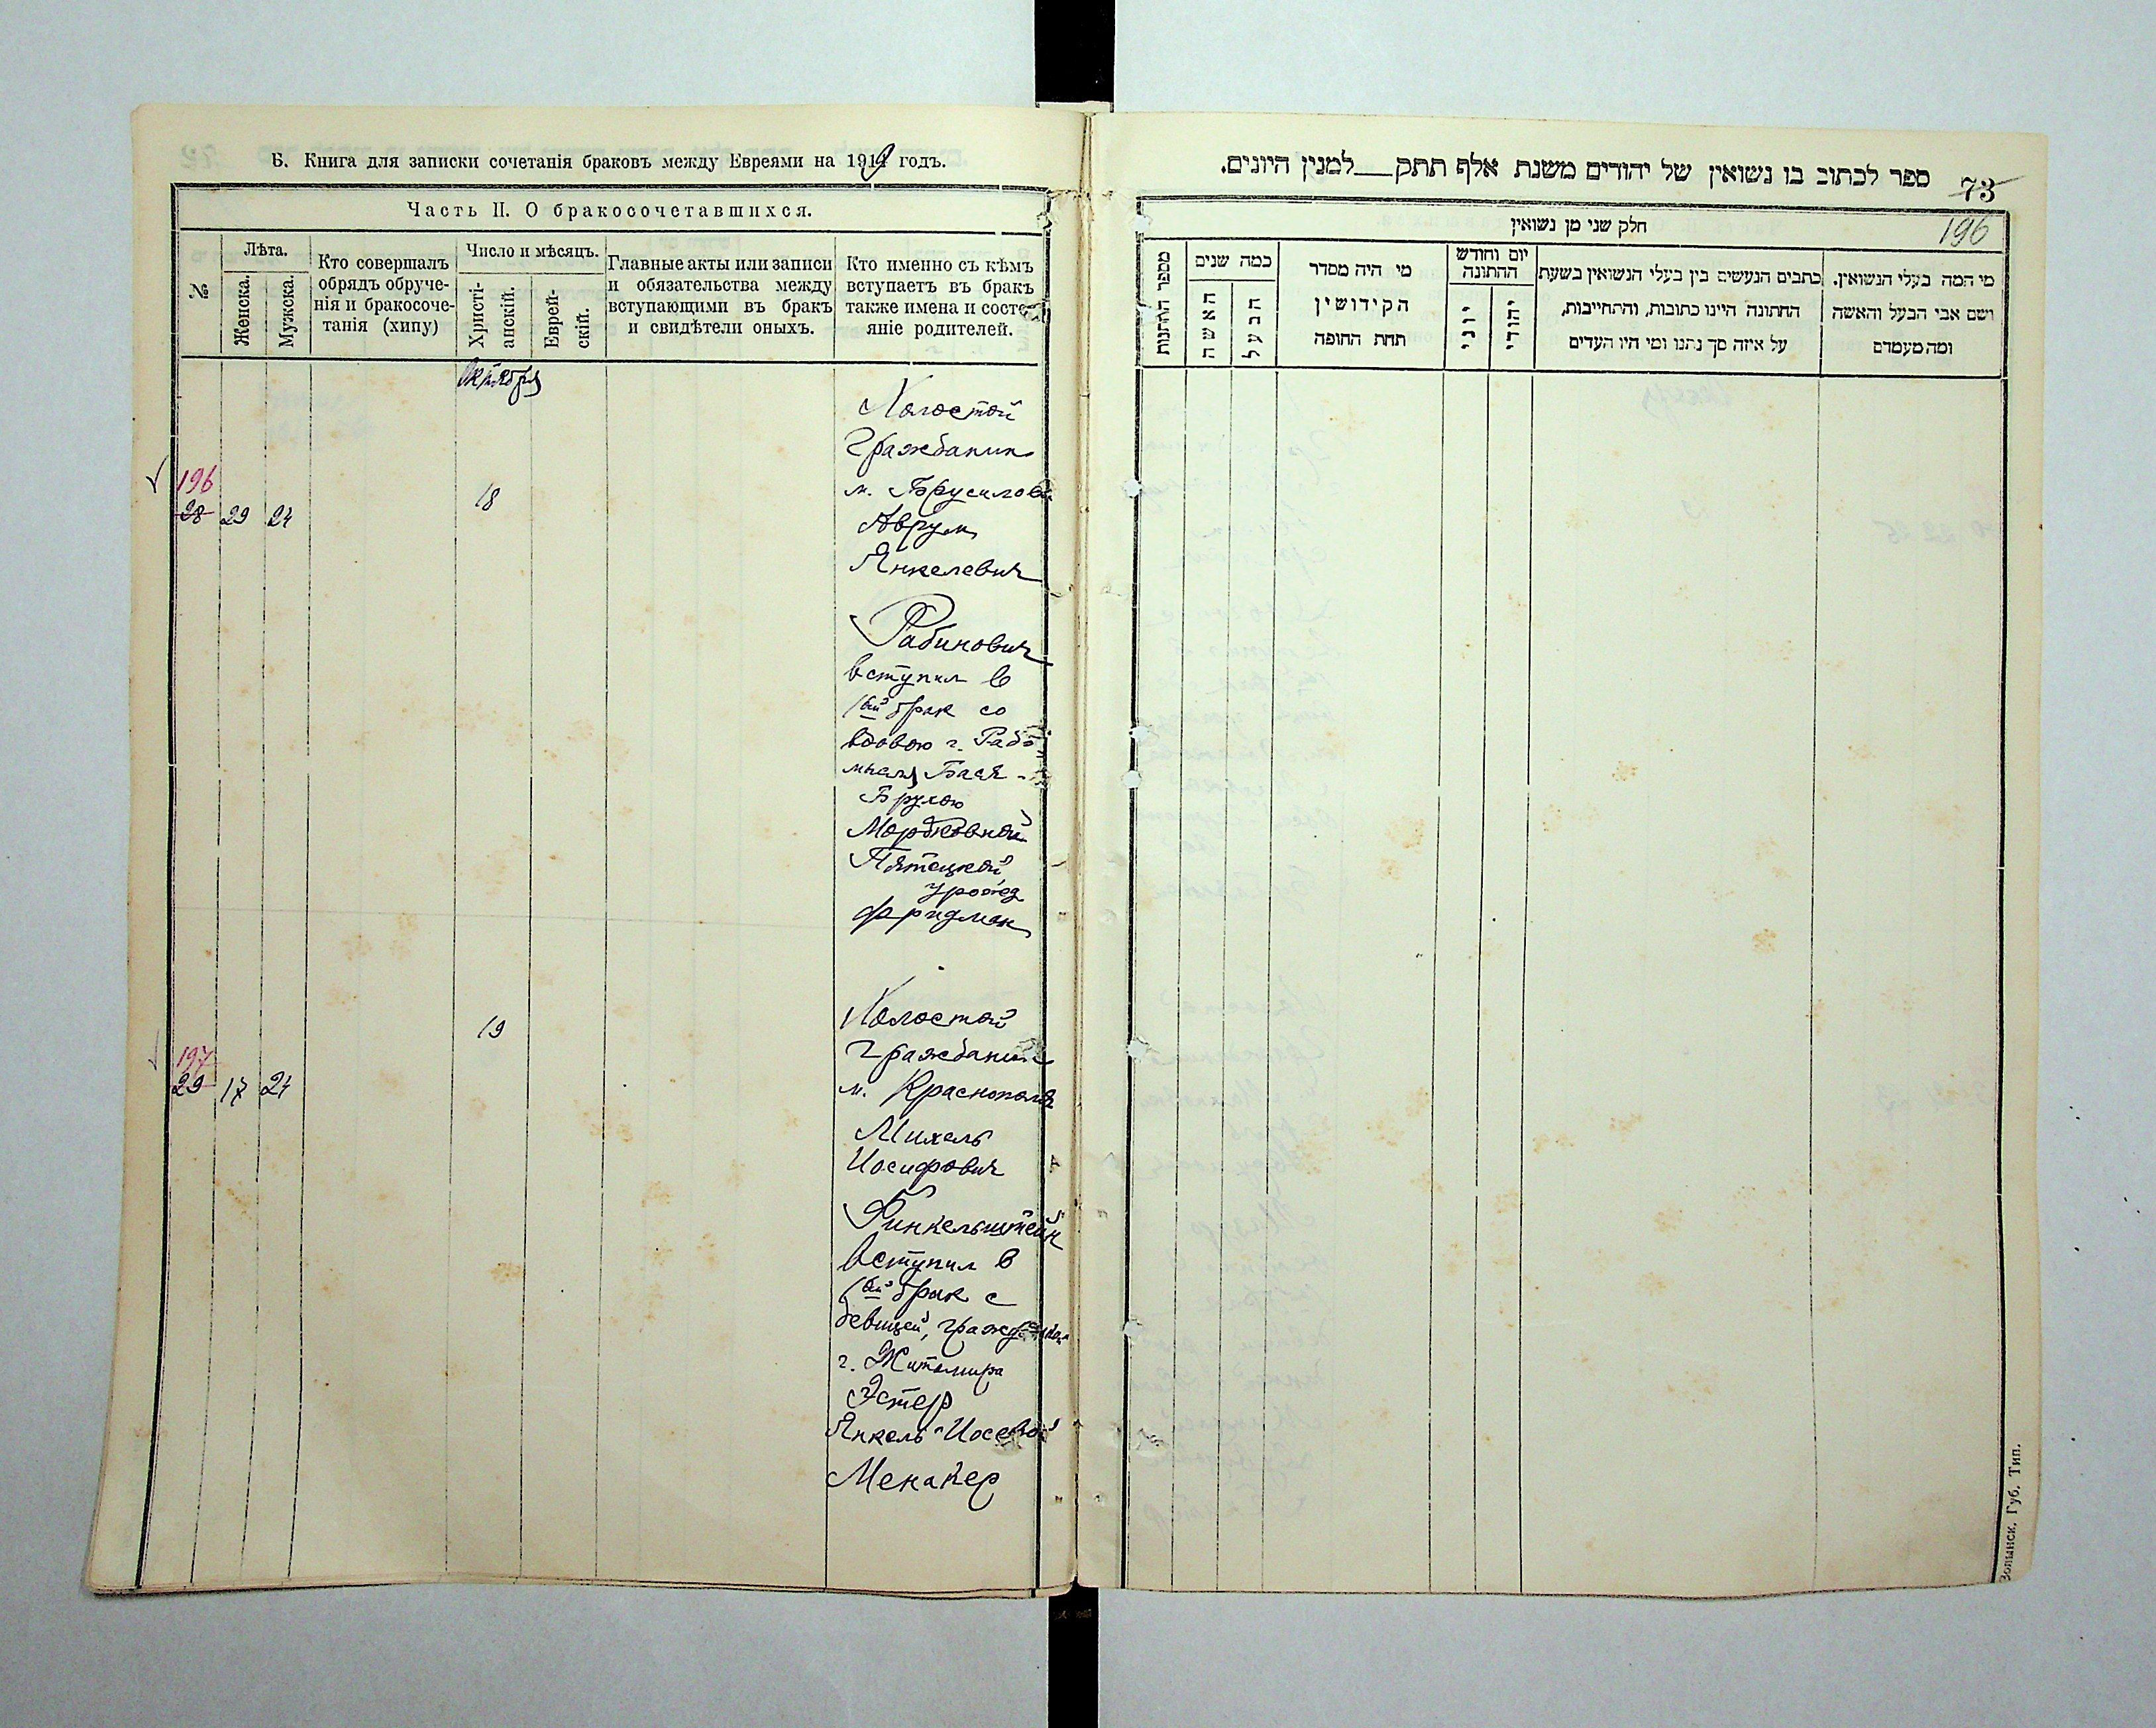 Б. Книга для записки сочетанія браковъ между Евреями на 1919 годъ.
Часть II. О бракосочетавшихся.
№
Лѣта.
Женска.
Мужска.
Кто совершалъ
обрядъ обруче-
нія и бракосоче-
танія (хипу)
Число и мѣсяцъ.
Христі-
анскій.
Еврей-
скій.
Главные акты или записи
и обязательства между
вступающими въ бракъ
и свидѣтели оныхъ.
Кто именно съ кѣмъ
вступаетъ въ бракъ
также имена и состо-
яніе родителей.
Октября
196
28 29 24
18
Холостой
Гражданин
м. Брусилова
Аврум
Янкелевич
Рабинович
вступил в
1ый брак со
вдовою г. Радо
мысля Бася -
Брухою
Мордковной
Пятецкой
урожд
Фридман
197
29 17 24
19
Холостой
Гражданин
м. Краснополя
Михель
Иосифович
Финкельштейн
вступил в
1ый брак с
девицей,
г. Житомира
Эстер
Янкель-Иосевой
Менакер
ספר לכתוב בו נשואין של יהודים משנת אלף תתק__למנין היונים.
73
196
חלק שני מן נשואין
מספר החתונות
כמה שנים
האשה
הבעל
מי היה מסדר
הקידושין
תחת החופה
יום וחודש
החתונה
יוני
יהודי
כתבים הנעשים בין בעלי הנשואין בשעת
החתונה היינו כתובות, והתחייבות,
על איזה סך נתנו ומי היו העדים
מי המה בעלי הנשואין.
ושם אבי הבעל והאשה
ומה מעמדם
Волынск. Губ. Тип.